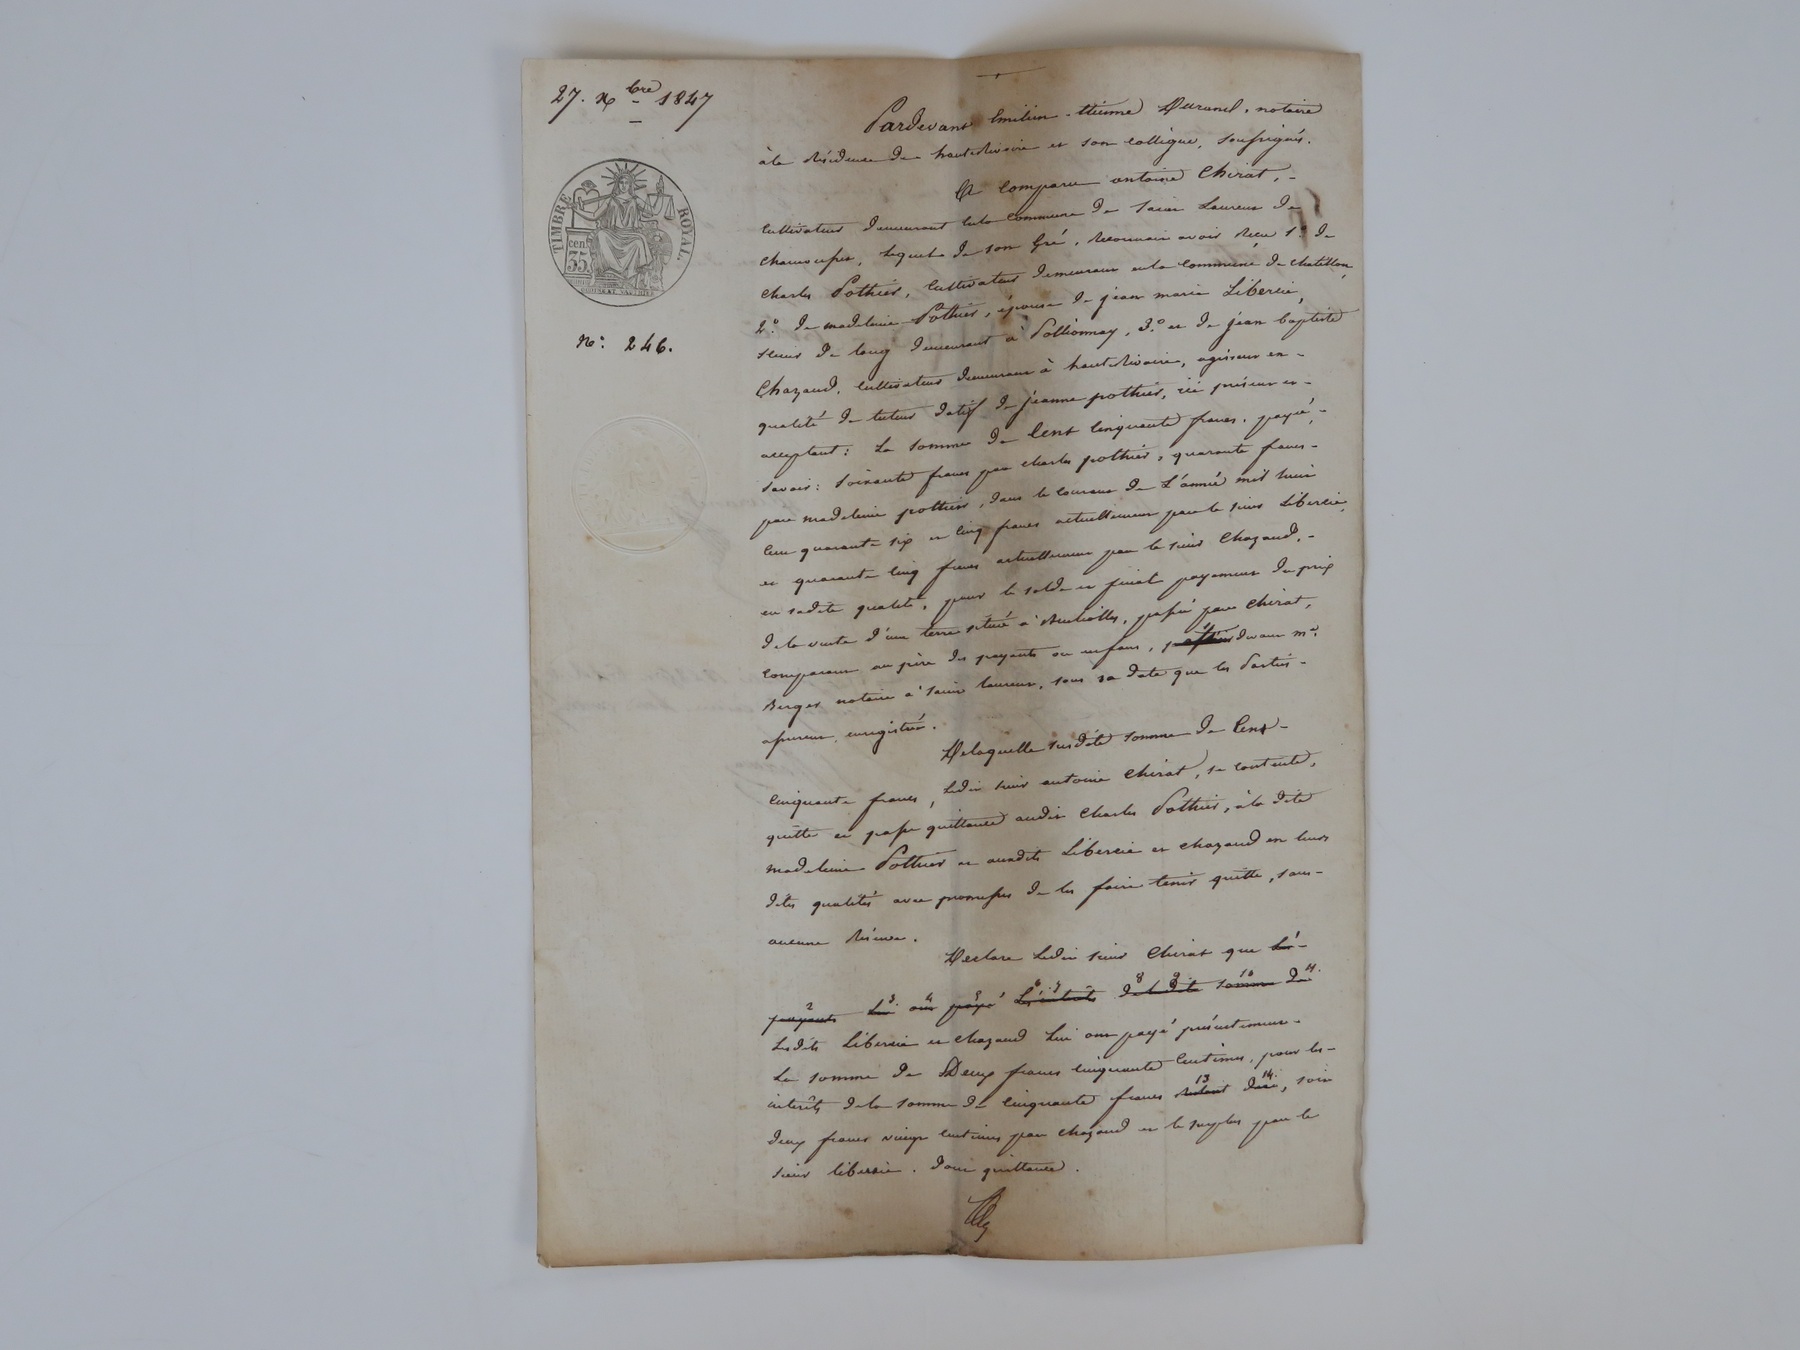 27. Xbre 1847
TIMBRE ROYAL.
cent.
35
N.° 246.
Pardevant Emilien-Etienne Durand, notaire
à la Résidence de hauterivoire et son collègue, soussignés.
A Comparu antoine Chirat,
Cultivateur demeurant en la commune de Saint Laurent de
Chamousset, lequel de son Gré, reconnait avoir reçu 1.° de
Charles Pothier, Cultivateur demeurant en la commune de chatillon,
2.° de madeleine Pothier, épouse de jean marie Libercié,
demeurant à Pollionnay, 3.° et de jean baptiste
Chazaud, Cultivateur demeurant à hauterivoire, agissant en
qualité de tuteur datif de jeanne pothier, ici présent et
acceptant : La Somme de Cent Cinquante francs, payée,
Savoir : Soixante francs par charles pothier, quarante francs
par madeleine pothier, dans le courant de L'année mil huit
Cent quarante six et cinq francs actuellement par le sieur Libercié,
et quarante cinq francs actuellement par le sieur Chazaud,
en sadite qualité, pour le solde et final payement du prix
de la vente d'une terre située à , passée par Chirat,
Comparant au père des payants ou enfans, devant m.e
Berger notaire à Saint Laurent, sous sa date que les Parties
assurent enregistrée.
De laquelle susdite somme de Cent
Cinquante francs, Ledit sieur antoine Chirat, se contente,
quitte et passe quittance audit Charles Pothier, à la dite
madeleine Pothier et auxdits Libercié et chazaud en leurs
dites qualités avec promesse de les faire tenir quitte, sans
aucune réserve.
Déclare Ledit sieur Chirat que Les
2 payants 3 Lui 4 ont 5 payé 6 7 Les intérêts 8 9 de ladite 10 somme 11 de
Lesdits Libercié et chazaud Lui ont payé présentement
La somme de Deux francs cinquante Centimes, pour les
intérêts de la somme de cinquante francs 13 restant 14 due, soit
deux francs vingt centimes par chazaud et le surplus par le
sieur libercié. dont quittance.